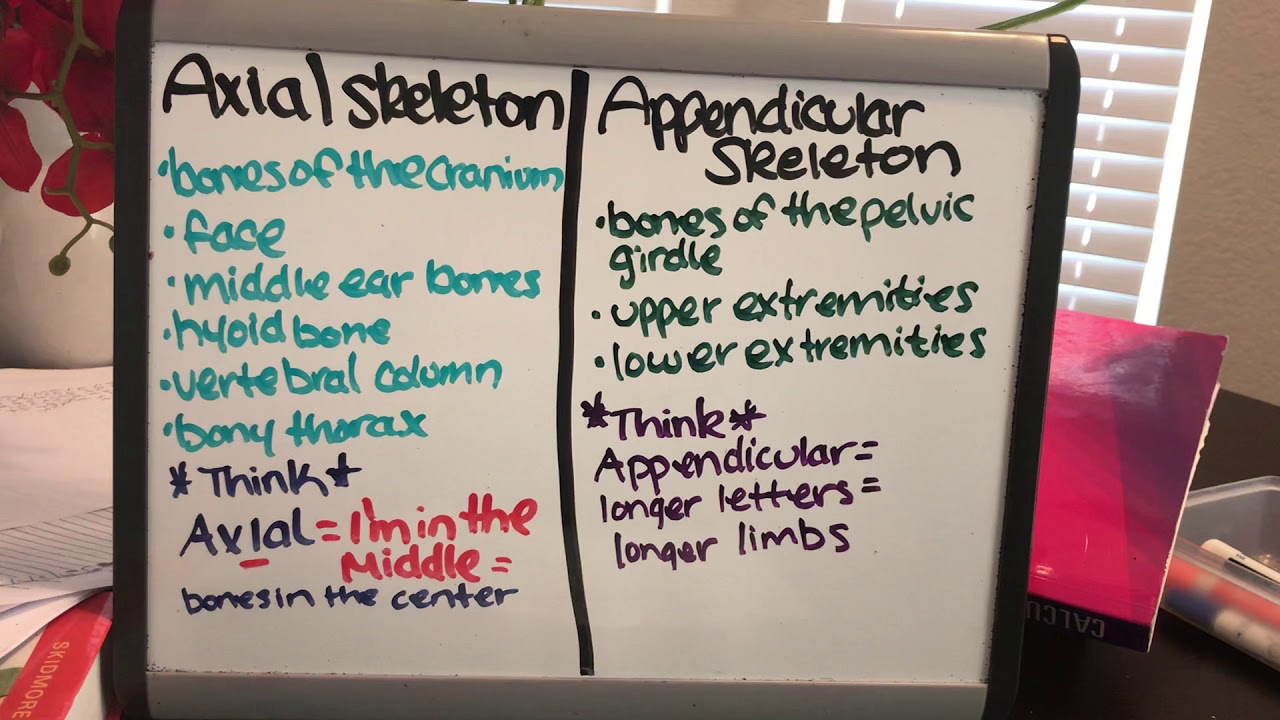 Axial skeleton
•bones of the cranium
•face
•middle ear bones
•hyoid bone
•vertebral column
•bony thorax
*Think*
Axial = I'm in the
Middle =
bones in the center
Appendicular
skeleton
•bones of the pelvic
girdle
•upper extremities
•lower extremities
*Think*
Appendicular=
longer letters=
longer limbs
SKIDMORE
CALCU